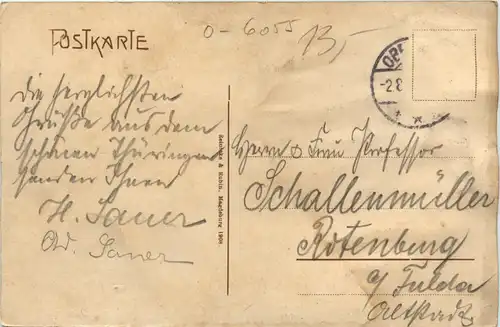 POSTKARTE
0-6055
13,-
OBE
-2.8
die herzlichsten
Grüße aus dem
schönen Thüringen
senden Ihnen
H. Sauer
Ad. Sauer
Reinicke & Rubin, Magdeburg 1908
Herrn & Frau Professor
Schallenmüller
Rotenburg
a/Fulda
Altstadt